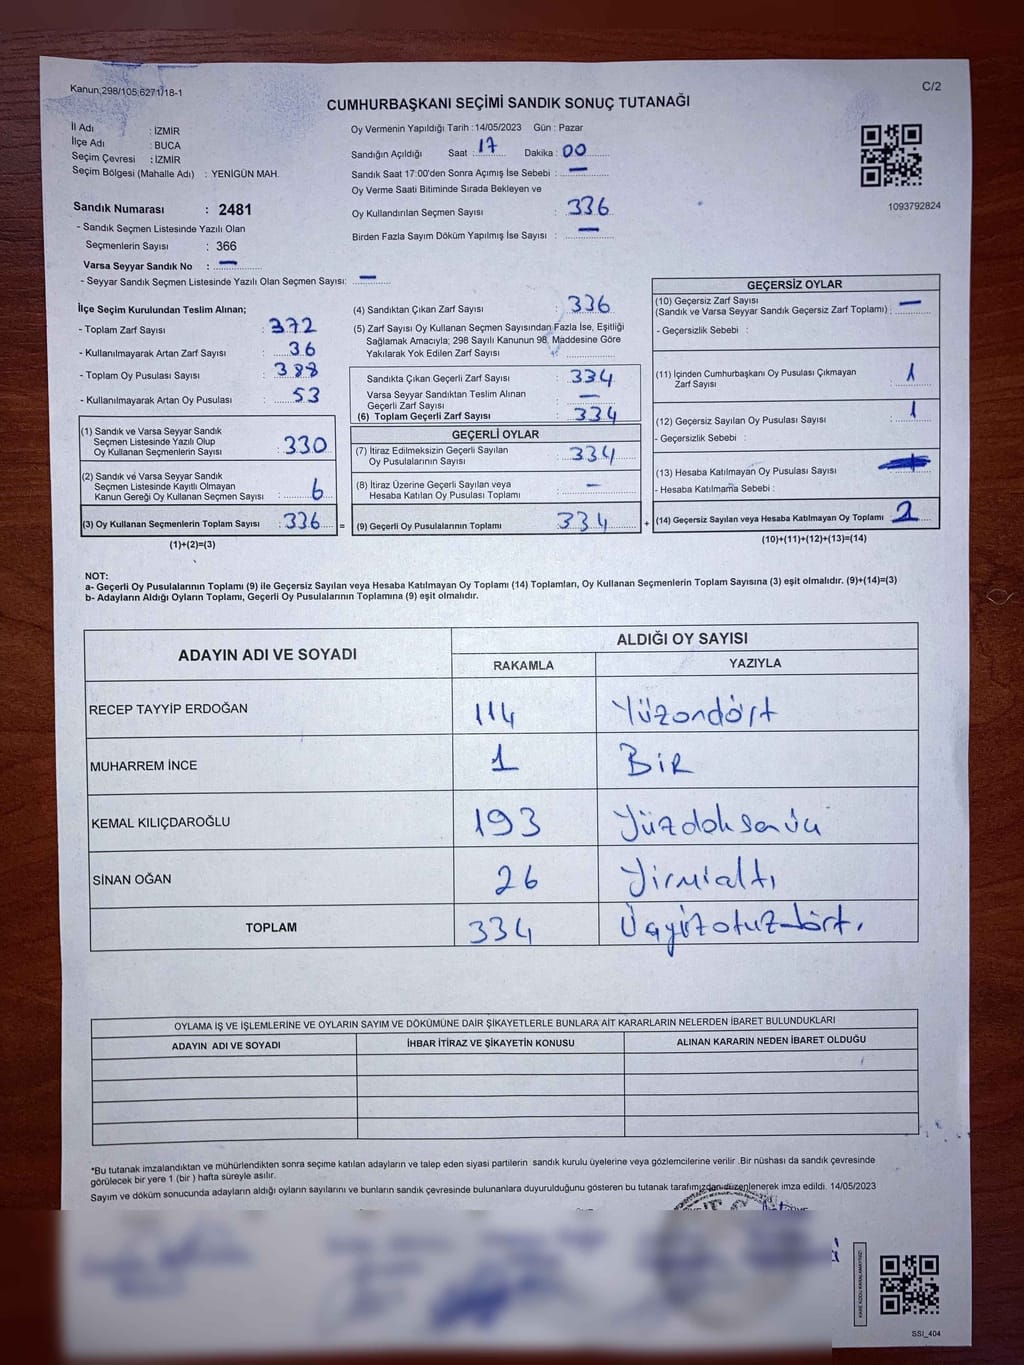 Kanun;298/105,6271/18-1
C/2
CUMHURBAŞKANI SEÇİMİ SANDIK SONUÇ TUTANAĞI
İl Adı : İZMİR
İlçe Adı : BUCA
Seçim Çevresi : İZMİR
Seçim Bölgesi (Mahalle Adı) : YENİGÜN MAH.
Sandık Numarası : 2481
- Sandık Seçmen Listesinde Yazılı Olan
Seçmenlerin Sayısı : 366
Varsa Seyyar Sandık No : —
- Seyyar Sandık Seçmen Listesinde Yazılı Olan Seçmen Sayısı: —
Oy Vermenin Yapıldığı Tarih : 14/05/2023 Gün : Pazar
Sandığın Açıldığı Saat : 17 Dakika : 00
Sandık Saat 17:00'den Sonra Açımış İse Sebebi : —
Oy Verme Saati Bitiminde Sırada Bekleyen ve
Oy Kullandırılan Seçmen Sayısı : 336
Birden Fazla Sayım Döküm Yapılmış İse Sayısı : —
1093792824
İlçe Seçim Kurulundan Teslim Alınan;
- Toplam Zarf Sayısı : 372
- Kullanılmayarak Artan Zarf Sayısı : 36
- Toplam Oy Pusulası Sayısı :
- Kullanılmayarak Artan Oy Pusulası : 53
(1) Sandık ve Varsa Seyyar Sandık
Seçmen Listesinde Yazılı Olup
Oy Kullanan Seçmenlerin Sayısı : 330
(2) Sandık ve Varsa Seyyar Sandık
Seçmen Listesinde Kayıtlı Olmayan
Kanun Gereği Oy Kullanan Seçmen Sayısı : 6
(3) Oy Kullanan Seçmenlerin Toplam Sayısı : 336 =
(1)+(2)=(3)
(4) Sandıktan Çıkan Zarf Sayısı : 336
(5) Zarf Sayısı Oy Kullanan Seçmen Sayısından Fazla İse, Eşitliği
Sağlamak Amacıyla; 298 Sayılı Kanunun 98. Maddesine Göre
Yakılarak Yok Edilen Zarf Sayısı
Sandıkta Çıkan Geçerli Zarf Sayısı : 334
Varsa Seyyar Sandıktan Teslim Alınan
Geçerli Zarf Sayısı : —
(6) Toplam Geçerli Zarf Sayısı : 334
GEÇERLİ OYLAR
(7) İtiraz Edilmeksizin Geçerli Sayılan
Oy Pusulalarının Sayısı : 334
(8) İtiraz Üzerine Geçerli Sayılan veya
Hesaba Katılan Oy Pusulası Toplamı : —
(9) Geçerli Oy Pusulalarının Toplamı : 334 +
GEÇERSİZ OYLAR
(10) Geçersiz Zarf Sayısı
(Sandık ve Varsa Seyyar Sandık Geçersiz Zarf Toplamı) : —
- Geçersizlik Sebebi :
(11) İçinden Cumhurbaşkanı Oy Pusulası Çıkmayan
Zarf Sayısı : 1
(12) Geçersiz Sayılan Oy Pusulası Sayısı : 1
- Geçersizlik Sebebi :
(13) Hesaba Katılmayan Oy Pusulası Sayısı
- Hesaba Katılmama Sebebi :
(14) Geçersiz Sayılan veya Hesaba Katılmayan Oy Toplamı : 2
(10)+(11)+(12)+(13)=(14)
NOT:
a- Geçerli Oy Pusulalarının Toplamı (9) ile Geçersiz Sayılan veya Hesaba Katılmayan Oy Toplamı (14) Toplamları, Oy Kullanan Seçmenlerin Toplam Sayısına (3) eşit olmalıdır. (9)+(14)=(3)
b- Adayların Aldığı Oyların Toplamı, Geçerli Oy Pusulalarının Toplamına (9) eşit olmalıdır.
ADAYIN ADI VE SOYADI
ALDIĞI OY SAYISI
RAKAMLA YAZIYLA
RECEP TAYYİP ERDOĞAN 114 Yüzondört
MUHARREM İNCE 1 BİR
KEMAL KILIÇDAROĞLU 193 Yüzdoksanüç
SİNAN OĞAN 26 Yirmialtı
TOPLAM 334 Üçyüzotuzdört.
OYLAMA İŞ VE İŞLEMLERİNE VE OYLARIN SAYIM VE DÖKÜMÜNE DAİR ŞİKAYETLERLE BUNLARA AİT KARARLARIN NELERDEN İBARET BULUNDUKLARI
ADAYIN ADI VE SOYADI İHBAR İTİRAZ VE ŞİKAYETİN KONUSU ALINAN KARARIN NEDEN İBARET OLDUĞU
*Bu tutanak imzalandıktan ve mühürlendikten sonra seçime katılan adayların ve talep eden siyasi partilerin sandık kurulu üyelerine veya gözlemcilerine verilir .Bir nüshası da sandık çevresinde
görülecek bir yere 1 (bir ) hafta süreyle asılır.
Sayım ve döküm sonucunda adayların aldığı oyların sayılarını ve bunların sandık çevresinde bulunanlara duyurulduğunu gösteren bu tutanak tarafımızdan düzenlenerek imza edildi. 14/05/2023
SSI_404